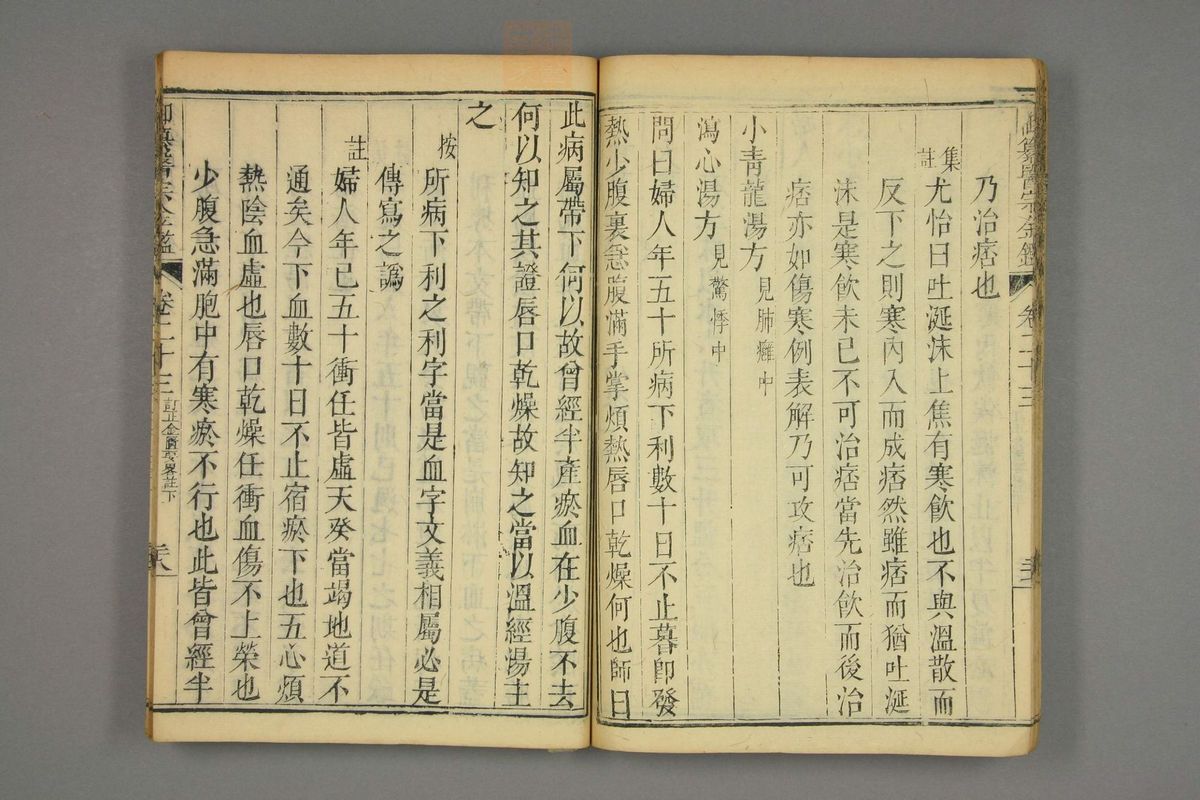 乃治痞也
集註尤怡曰吐涎沫上焦有寒飲也不與溫散而
反下之則寒內入而成痞然雖痞而猶吐涎
沫是寒飲未已不可治痞當先治飲而後治
痞亦如傷寒例表解乃可攻痞也
小青龍湯方見肺癰中
瀉心湯方見驚悸中
問曰婦人年五十所病下利數十日不止暮即發
熱少腹裏急腹滿手掌煩熱唇口乾燥何也師曰
此病屬帶下何以故曾經半產瘀血在少腹不去
何以知之其證唇口乾燥故知之當以溫經湯主
之
按所病下利之利字當是血字文義相屬必是
傳寫之譌
註婦人年已五十衝任皆虛天癸當竭地道不
通矣今下血數十日不止宿瘀下也五心煩
熱陰血虛也唇口乾燥任衝血傷不上榮也
少腹急滿胞中有寒瘀不行也此皆曾經半
御纂醫宗金鑑 卷二十三 訂正金匱要畧註下